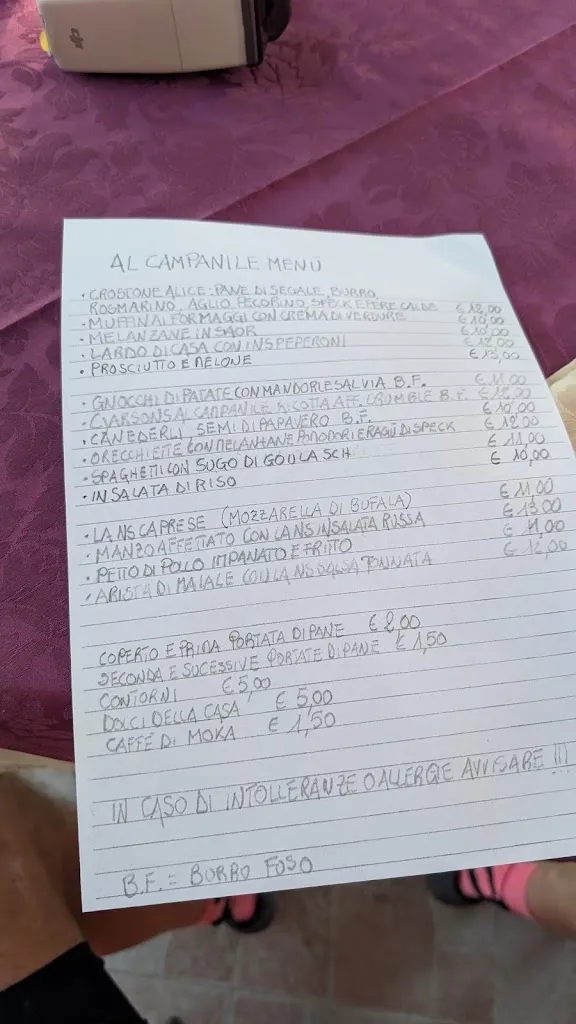 dji
AL CAMPANILE MENÙ
• CROSTONE ALICE: PANE DI SEGALE, BURRO,
ROSMARINO AGLIO PECORINO, SPECK E PERE CALDE € 12,00
• MUFFIN AI FORMAGGI CON CREMA DI VERDURE € 10,00
• MELANZANE IN SAOR € 10,00
• LARDO DI CASA CON I NS PEPERONI € 12,00
• PROSCIUTTO E MELONE € 13,00
• GNOCCHI DI PATATE CON MANDORLE SALVIA B.F. € 11,00
• CJARSONS AL CAMPANILE RICOTTA AFF. CRUMBLE B.F. € 12,00
• CANEDERLI SEMI DI PAPAVERO B.F. € 10,00
• ORECCHIETTE CON MELANZANE POMODORI E RAGÙ DI SPECK € 12,00
• SPAGHETTI CON SUGO DI GOULASCH € 11,00
• INSALATA DI RISO € 10,00
• LA NS CAPRESE (MOZZARELLA DI BUFALA) € 11,00
• MANZO AFFETTATO CON LA NS INSALATA RUSSA € 13,00
• PETTO DI POLLO IMPANATO E FRITTO € 11,00
• ARISTA DI MAIALE CON LA NS SALSA TONNATA € 12,00
COPERTO E PRIMA PORTATA DI PANE € 2,00
SECONDA E SUCESSIVE PORTATE DI PANE € 1,50
CONTORNI € 5,00
DOLCI DELLA CASA € 5,00
CAFFÈ DI MOKA € 1,50
IN CASO DI INTOLLERANZE O ALLERGIE AVVISARE !!!
B.F. = BURRO FUSO